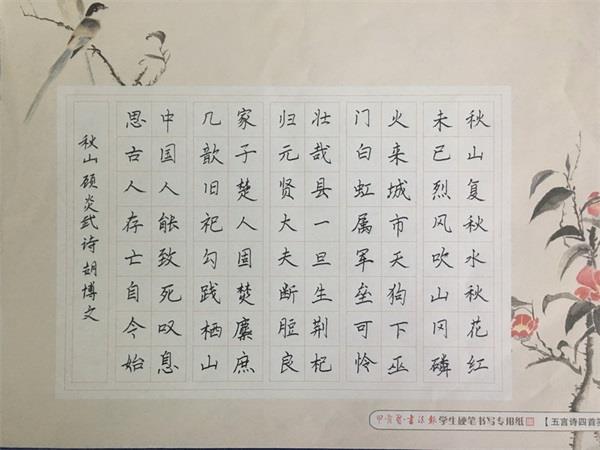 秋山复秋水秋花红
未已烈风吹山冈磷
火来城市天狗下巫
门白虹属军垒可怜
壮哉县一旦生荆杞
归元贤大夫断脰良
家子楚人固焚麇庶
几歆旧祀勾践栖山
中国人能致死叹息
思古人存亡自今始
秋山 顾炎武诗 胡博文
书法报 学生硬笔书写专用纸 【五言诗四首